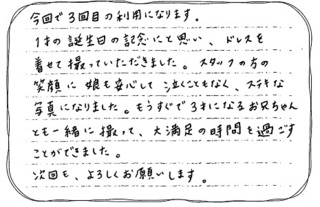 今回で3回目の利用になります。
1才の誕生日の記念にと思い、ドレスを
着せて撮っていただきました。スタッフの方の
笑顔に娘も安心して泣くこともなく、ステキな
写真になりました。もうすぐで3才になるお兄ちゃん
とも一緒に撮って、大満足の時間を過ごす
ことができました。
次回も、よろしくお願いします。